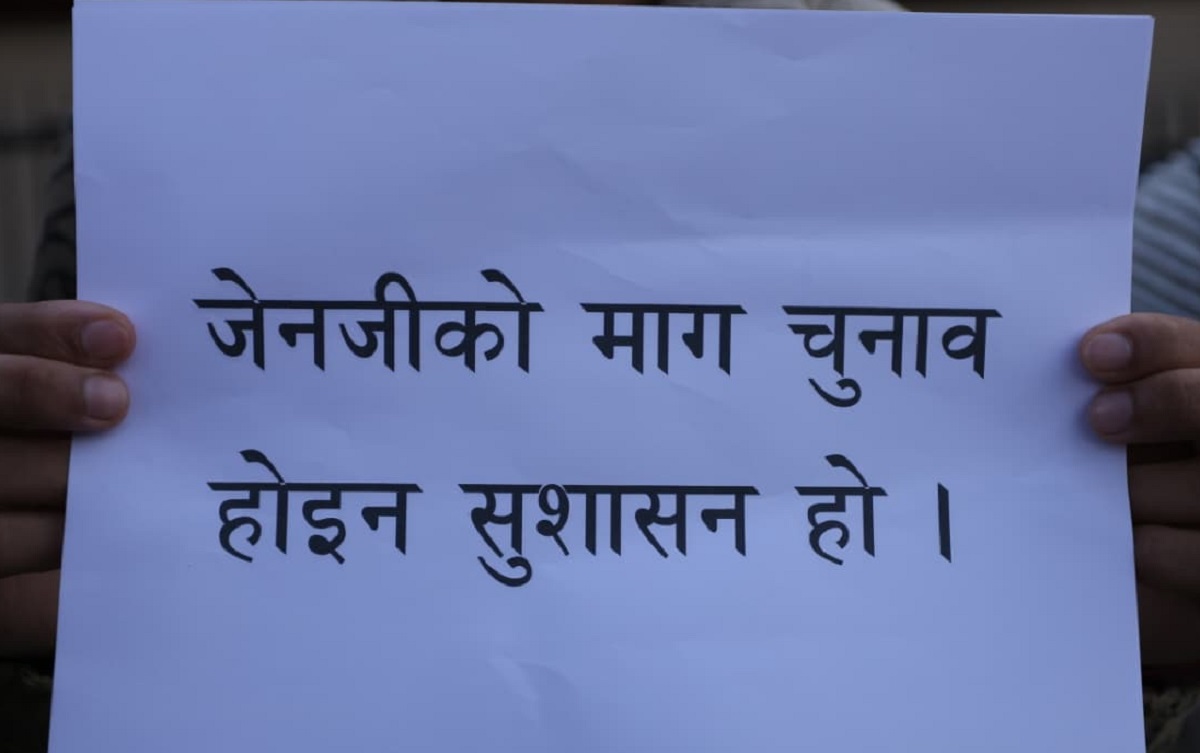 जेनजीको माग चुनाव
होइन सुशासन हो ।